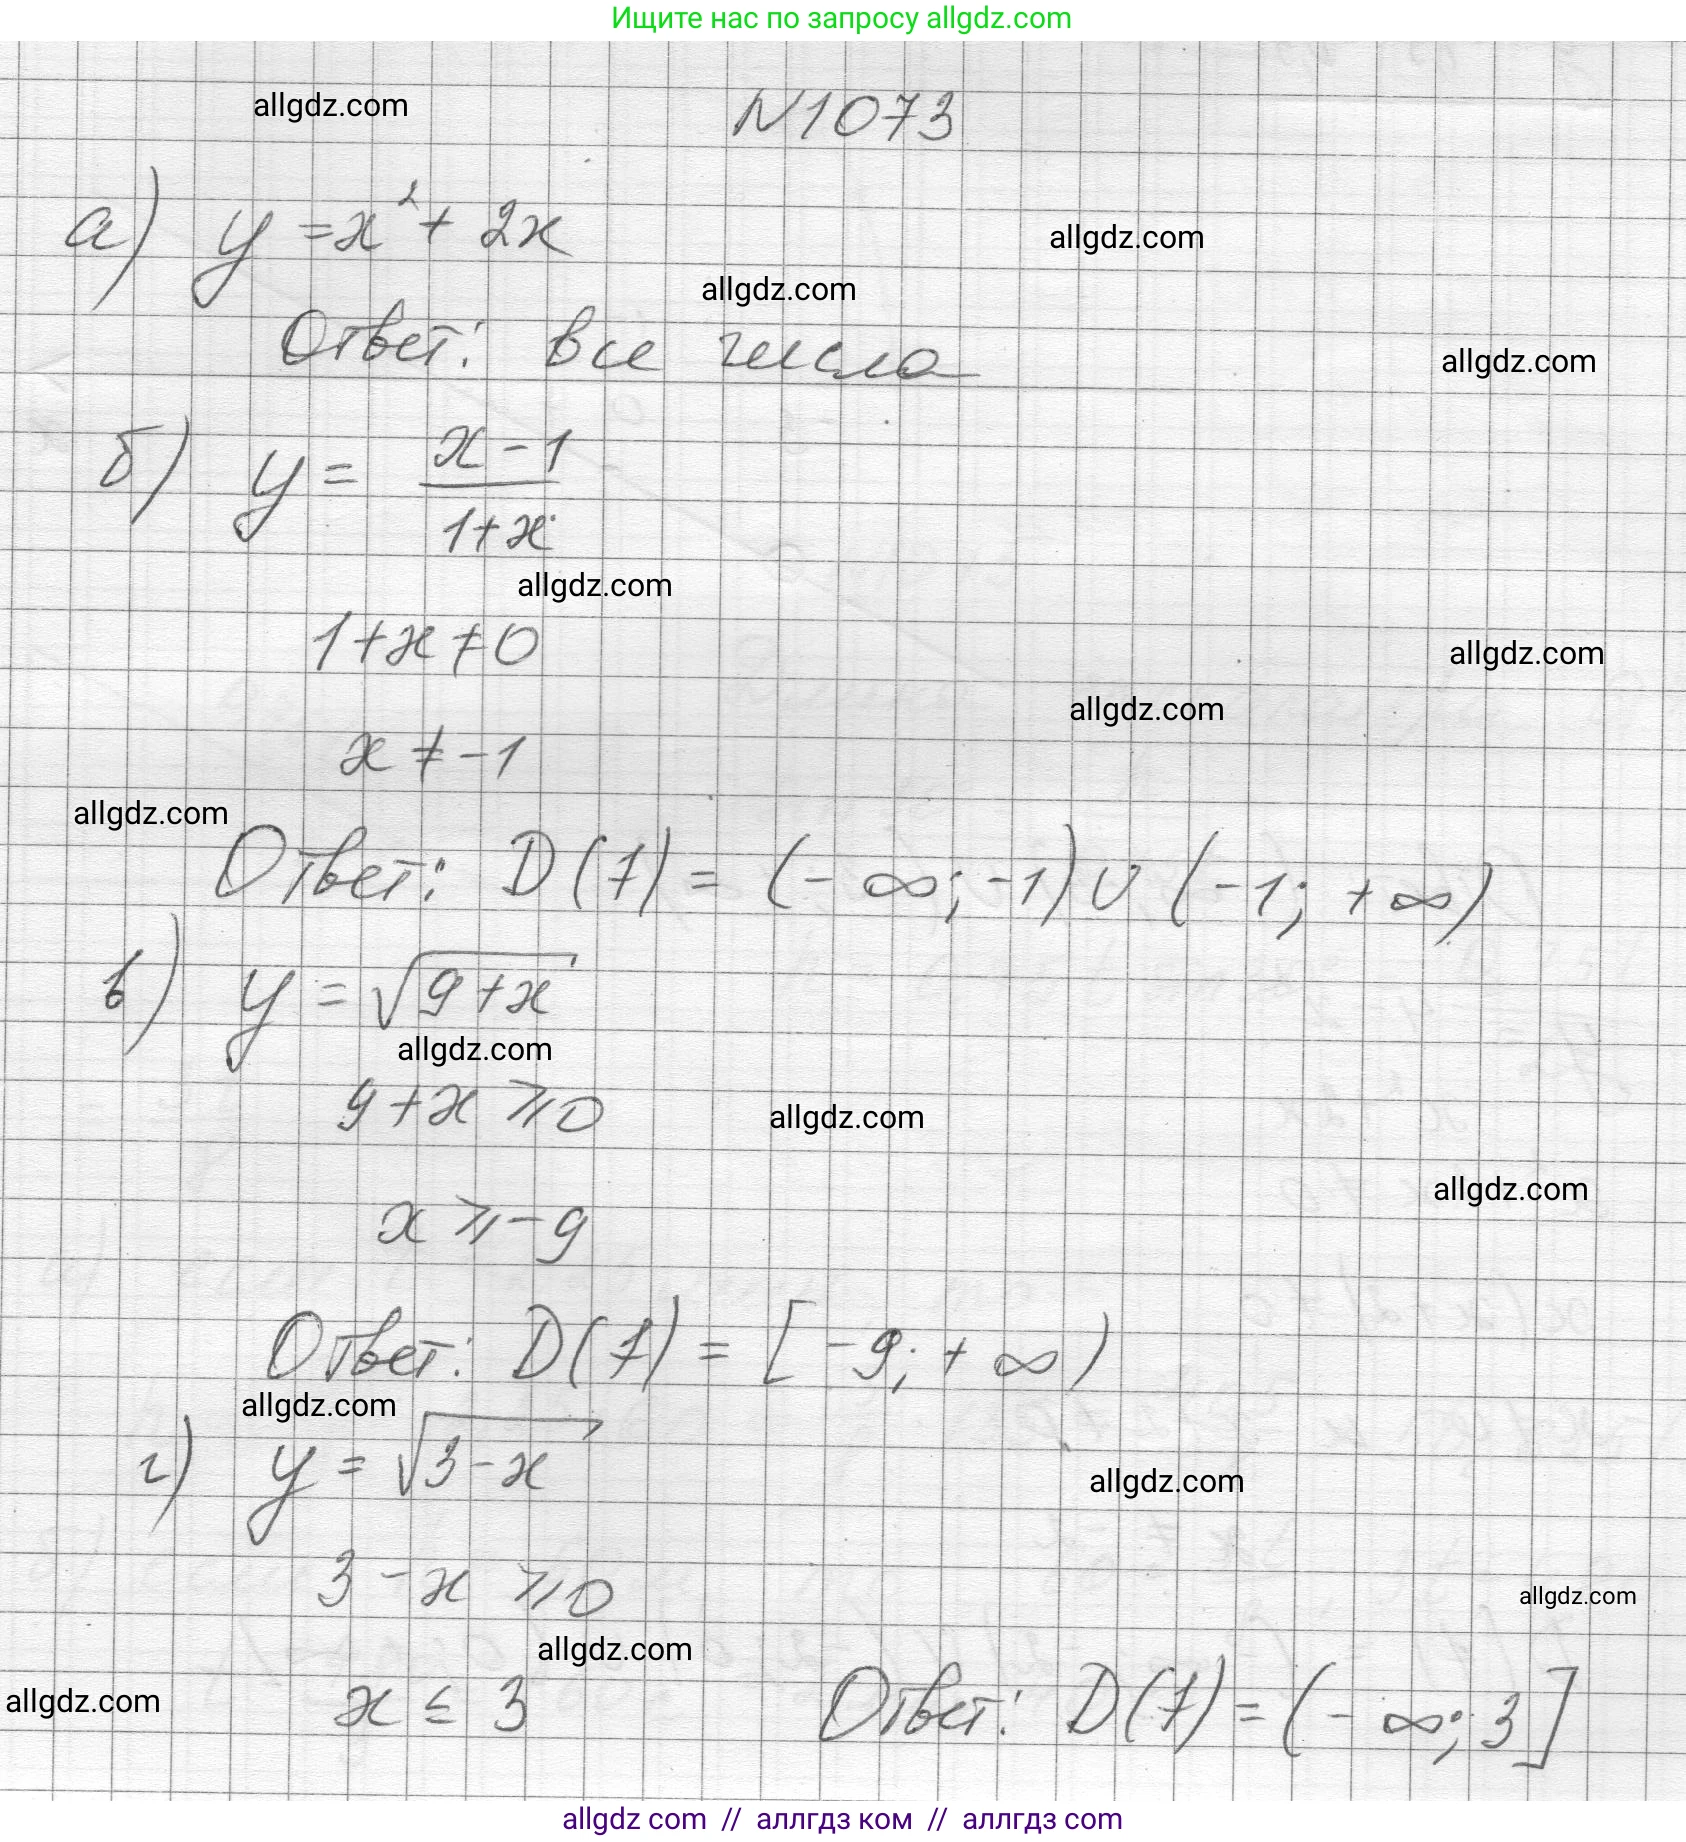 Ищите нас по запросу allgdz.com
allgdz.com
N1073
а) y = x² + 2x
allgdz.com
allgdz.com
Ответ: все числа
allgdz.com
б) y = (x - 1)/(1 + x)
allgdz.com
1 + x ≠ 0
allgdz.com
allgdz.com
x ≠ -1
allgdz.com
Ответ: D(f) = (-∞; -1) ∪ (-1; +∞)
в) y = √(9 + x)
allgdz.com
9 + x ⩾ 0
allgdz.com
allgdz.com
x ⩾ -9
Ответ: D(f) = [-9; +∞)
allgdz.com
г) y = √(3 - x)
allgdz.com
3 - x ⩾ 0
allgdz.com
allgdz.com
allgdz.com
x ≤ 3 Ответ: D(f) = (-∞; 3]
allgdz com // аллгдз ком // аллгдз com